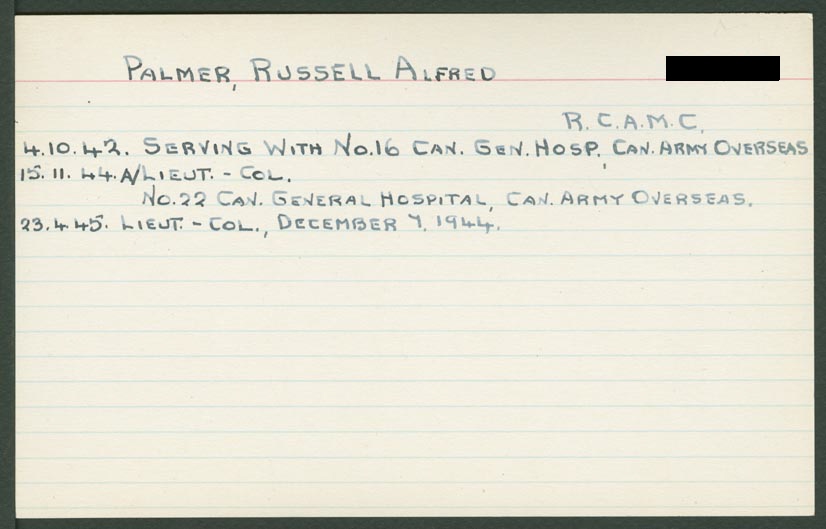 PALMER, RUSSELL ALFRED
R.C.A.M.C.
4.10.42. SERVING WITH NO.16 CAN. GEN. HOSP., CAN. ARMY OVERSEAS
15.11.44. A/LIEUT. - COL.
NO.22 CAN. GENERAL HOSPITAL, CAN. ARMY OVERSEAS.
23.4.45. LIEUT. - COL., DECEMBER 7, 1944.